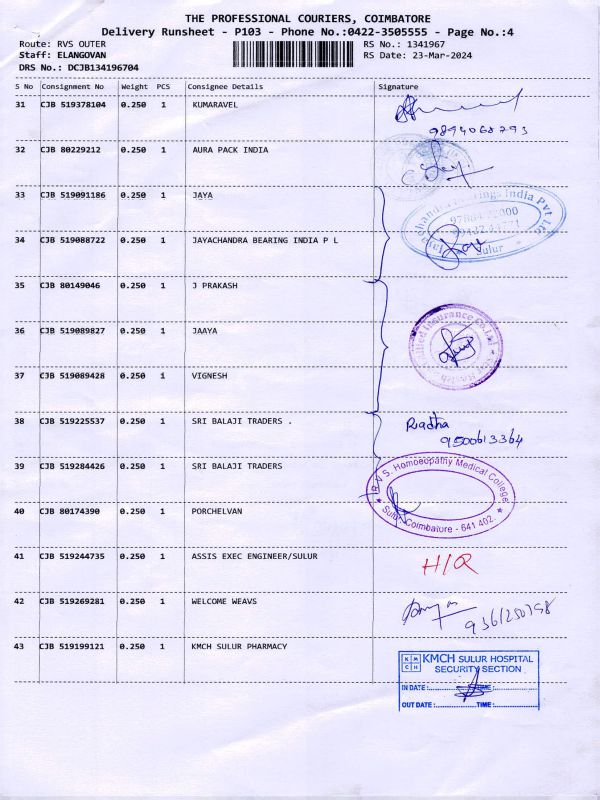 THE PROFESSIONAL COURIERS, COIMBATORE
Delivery Runsheet - P103 - Phone No.:0422-3505555 - Page No.:4
Route: RVS OUTER RS No.: 1341967
Staff: ELANGOVAN RS Date: 23-Mar-2024
DRS No.: DCJB134196704
S No Consignment No Weight PCS Consignee Details Signature
31 CJB 519378104 0.250 1 KUMARAVEL
9894068793
32 CJB 80229212 0.250 1 AURA PACK INDIA
33 CJB 519091186 0.250 1 JAYA
India Pvt Ltd
34 CJB 519088722 0.250 1 JAYACHANDRA BEARING INDIA P L
Sulur
35 CJB 80149046 0.250 1 J PRAKASH
36 CJB 519089827 0.250 1 JAAYA
Insurance Co. Ltd
37 CJB 519089428 0.250 1 VIGNESH
38 CJB 519225537 0.250 1 SRI BALAJI TRADERS .
Radha
9500613364
39 CJB 519284426 0.250 1 SRI BALAJI TRADERS
R.V.S. Homoeopathy Medical College
Sulur, Coimbatore - 641 402.
40 CJB 80174390 0.250 1 PORCHELVAN
41 CJB 519244735 0.250 1 ASSIS EXEC ENGINEER/SULUR
H/Q
42 CJB 519269281 0.250 1 WELCOME WEAVS
9361250798
43 CJB 519199121 0.250 1 KMCH SULUR PHARMACY
KMCH
KMCH SULUR HOSPITAL
SECURITY SECTION
IN DATE : TIME :
OUT DATE : TIME :